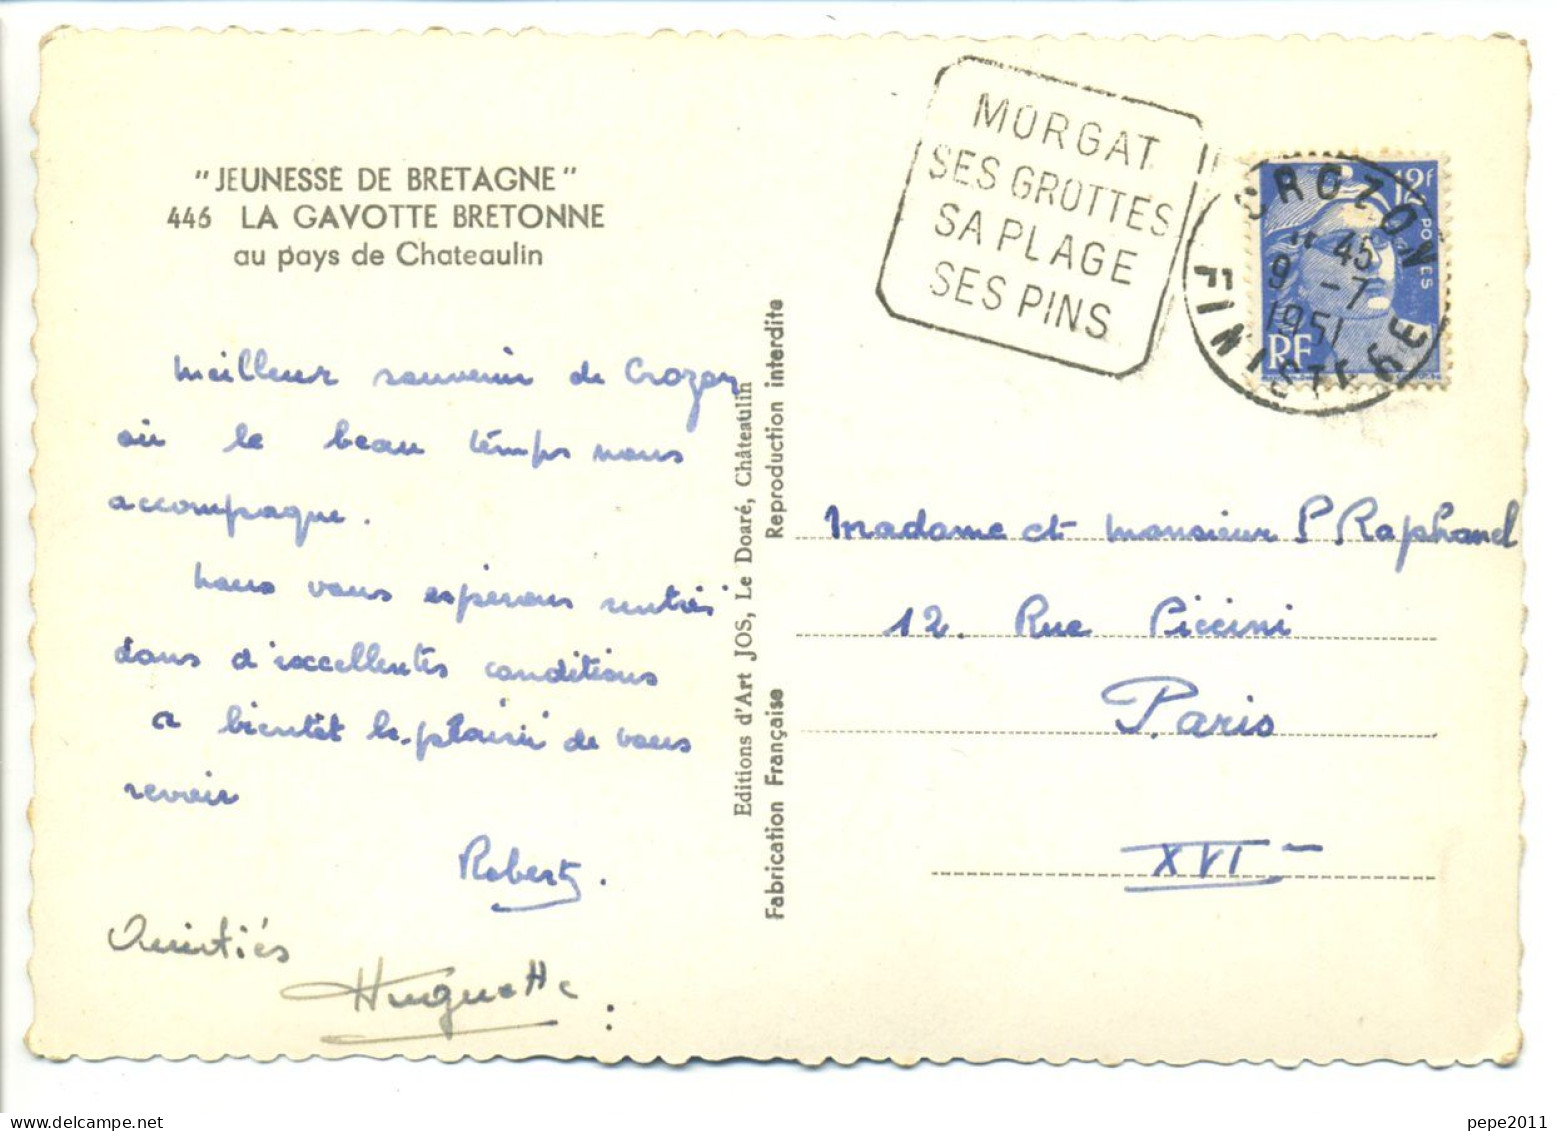 "JEUNESSE DE BRETAGNE"
446 LA GAVOTTE BRETONNE
au pays de Chateaulin
Meilleur souvenir de Crozon
où le beau temps nous
accompagne.
Nous vous espérons rentrés
dans d'excellentes conditions
a bientôt le plaisir de vous
revoir
Robert.
Amitiés
Huguette
Editions d'Art JOS, Le Doaré, Châteaulin
Fabrication Française
Reproduction interdite
MORGAT
SES GROTTES
SA PLAGE
SES PINS
CROZON
45
9 -7
1951
FINISTERE
12F
POSTES
RF
Madame et Monsieur P Raphanel
12. Rue Piccini
Paris
XVI
pepe2011